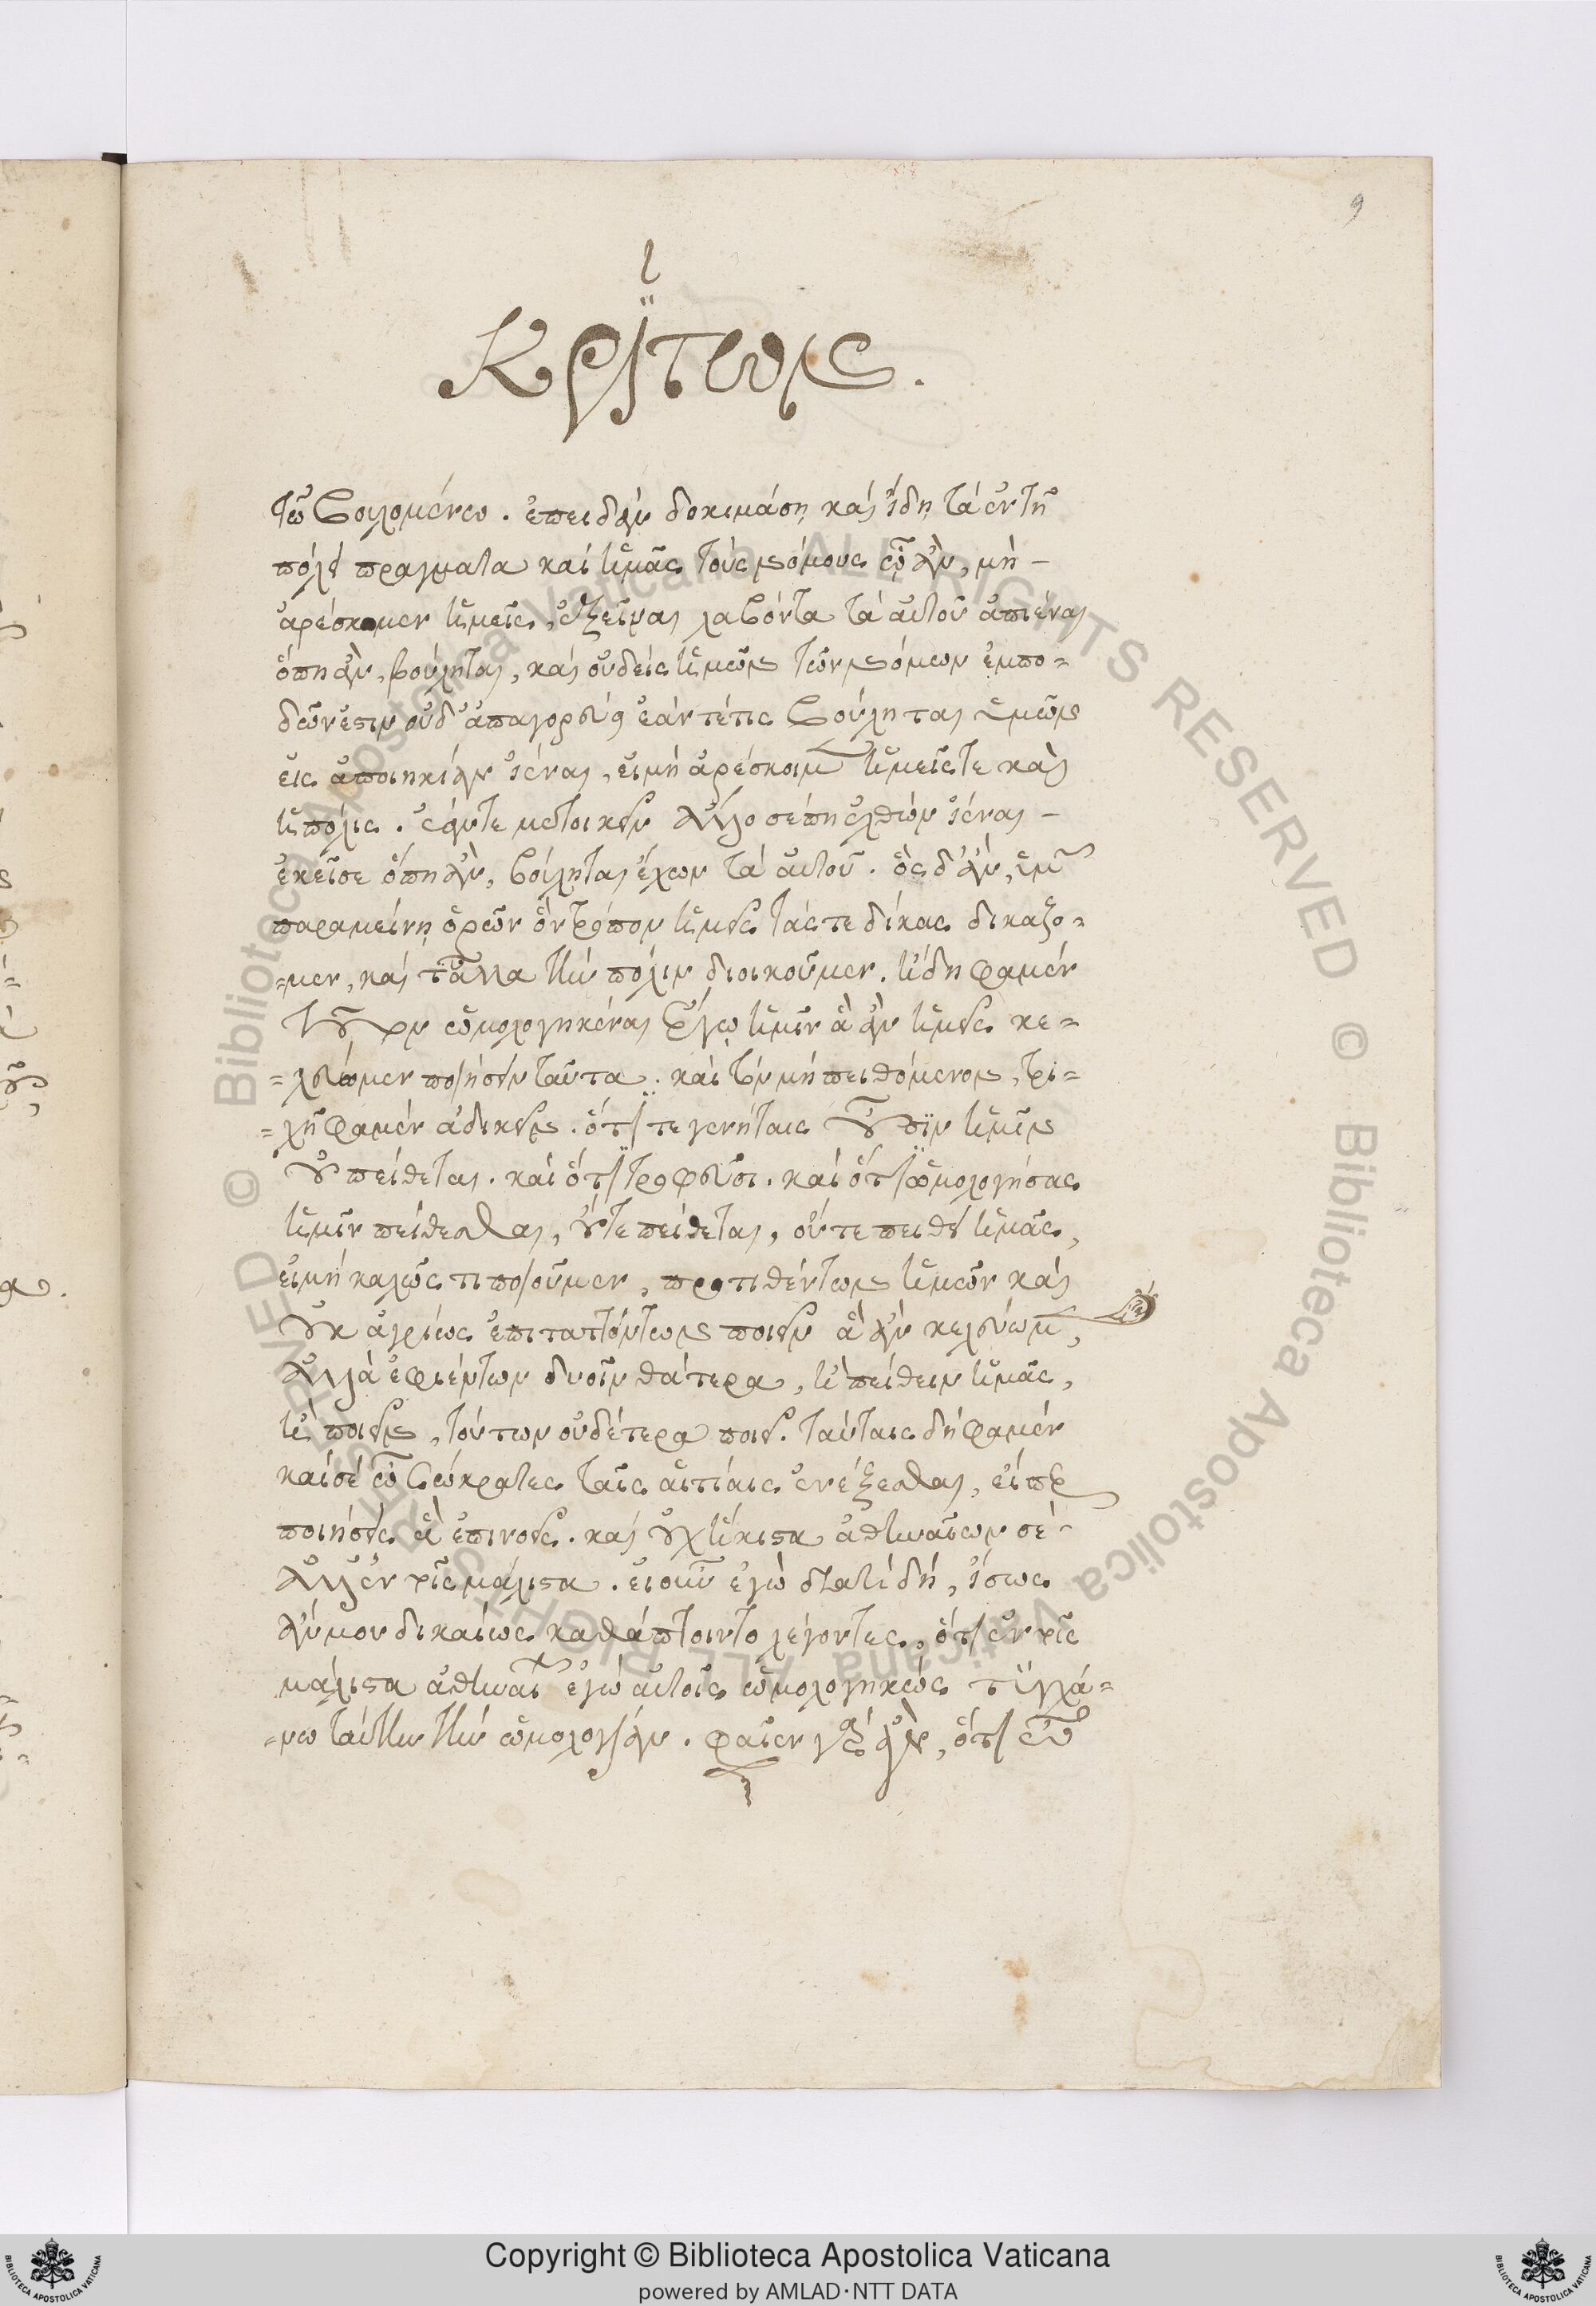 9
Κρίτων.
τῷ βουλομένω. ἐπειδὰν δοκιμάσῃ καὶ ἴδῃ τὰ ἐν τῇ
πόλει πραγματα καὶ ἡμᾶς τοὺς νόμους ᾧ ἂν, μὴ -
ἀρέσκομεν ἡμεῖς, ἐξεῖναι λαβόντα τὰ αὑτοῦ ἀπιέναι
ὅπη ἂν, βούληται, καὶ οὐδεὶς ἡμῶν τῶν νόμων ἐμπο=
δῶν ἐστιν οὐδ' ἀπαγορεύει ἐάν τέ τις βούληται ὑμῶν
εἰς ἀποικίαν ἰέναι, εἰ μὴ ἀρέσκοιμεν ἡμεῖς τε καὶ
ἡ πόλις. ἐάν τε μετοικεῖν ἄλλο σέ πη ἐλθὼν ἰέναι -
ἐκεῖσε ὅπη ἂν, βούληται ἔχων τὰ αὑτοῦ. ὃς δ' ἂν, ὑμῶν
παραμείνῃ ὁρῶν ὃν τρόπον ἡμεῖς τάς τε δίκας δικαζο=
=μεν, καὶ τἆλλα τὴν πόλιν διοικοῦμεν. ἤδη φαμὲν
τοῦτον ὡμολογηκέναι ἔργῳ ἡμῖν ἃ ἂν ἡμεῖς κε=
=λεύωμεν ποιήσειν ταῦτα. καὶ τὸν μὴ πειθόμενον, τρι=
=χῇ φαμὲν ἀδικεῖν. ὅτι τε γενήταις οὖσιν ἡμῖν
οὐ πείθεται. καὶ ὅτι τροφεῦσι. καὶ ὅτι ὁμολογήσας
ἡμῖν πείθεσθαι, οὔτε πείθεται, οὔτε πείθει ἡμᾶς,
εἰ μὴ καλῶς τι ποιοῦμεν, προτιθέντων ἡμῶν καὶ
οὐκ ἀγρίως ἐπιταττόντων ποιεῖν ἃ ἂν κελεύωμεν,
ἀλλὰ ἐφιέντων δυοῖν θάτερα, ἢ πείθειν ἡμᾶς,
ἢ ποιεῖν, τούτων οὐδέτερα ποιεῖ. ταύταις δή φαμὲν
καὶ σὲ ὦ Σώκρατες ταῖς αἰτίαις ἐνέξεσθαι, εἴπερ
ποιήσεις ἃ ἐπινοεῖς. καὶ οὐχ ἥκιστα ἀθηναίων σὲ -
ἀλλ' ἐν τοῖς μάλιστα. εἰ οὖν ἐγὼ διατί δή, ἴσως
ἄν μου δικαίως καθάπτοιντο λέγοντες, ὅτι ἐν τοῖς
μάλιστα ἀθηναίων ἐγὼ αὐτοῖς ὡμολογηκὼς τυγχά=
=νω ταύτην τὴν ὁμολογίαν. φαῖεν γὰρ ἂν, ὅτι ὦ